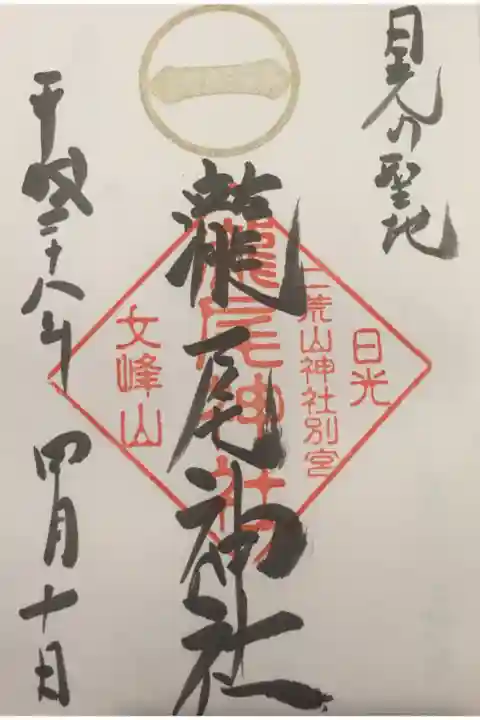 一
日光の聖地
日光
二荒山神社別宮
瀧尾神社
瀧尾神社
女峰山
平成二十八年 四月十日